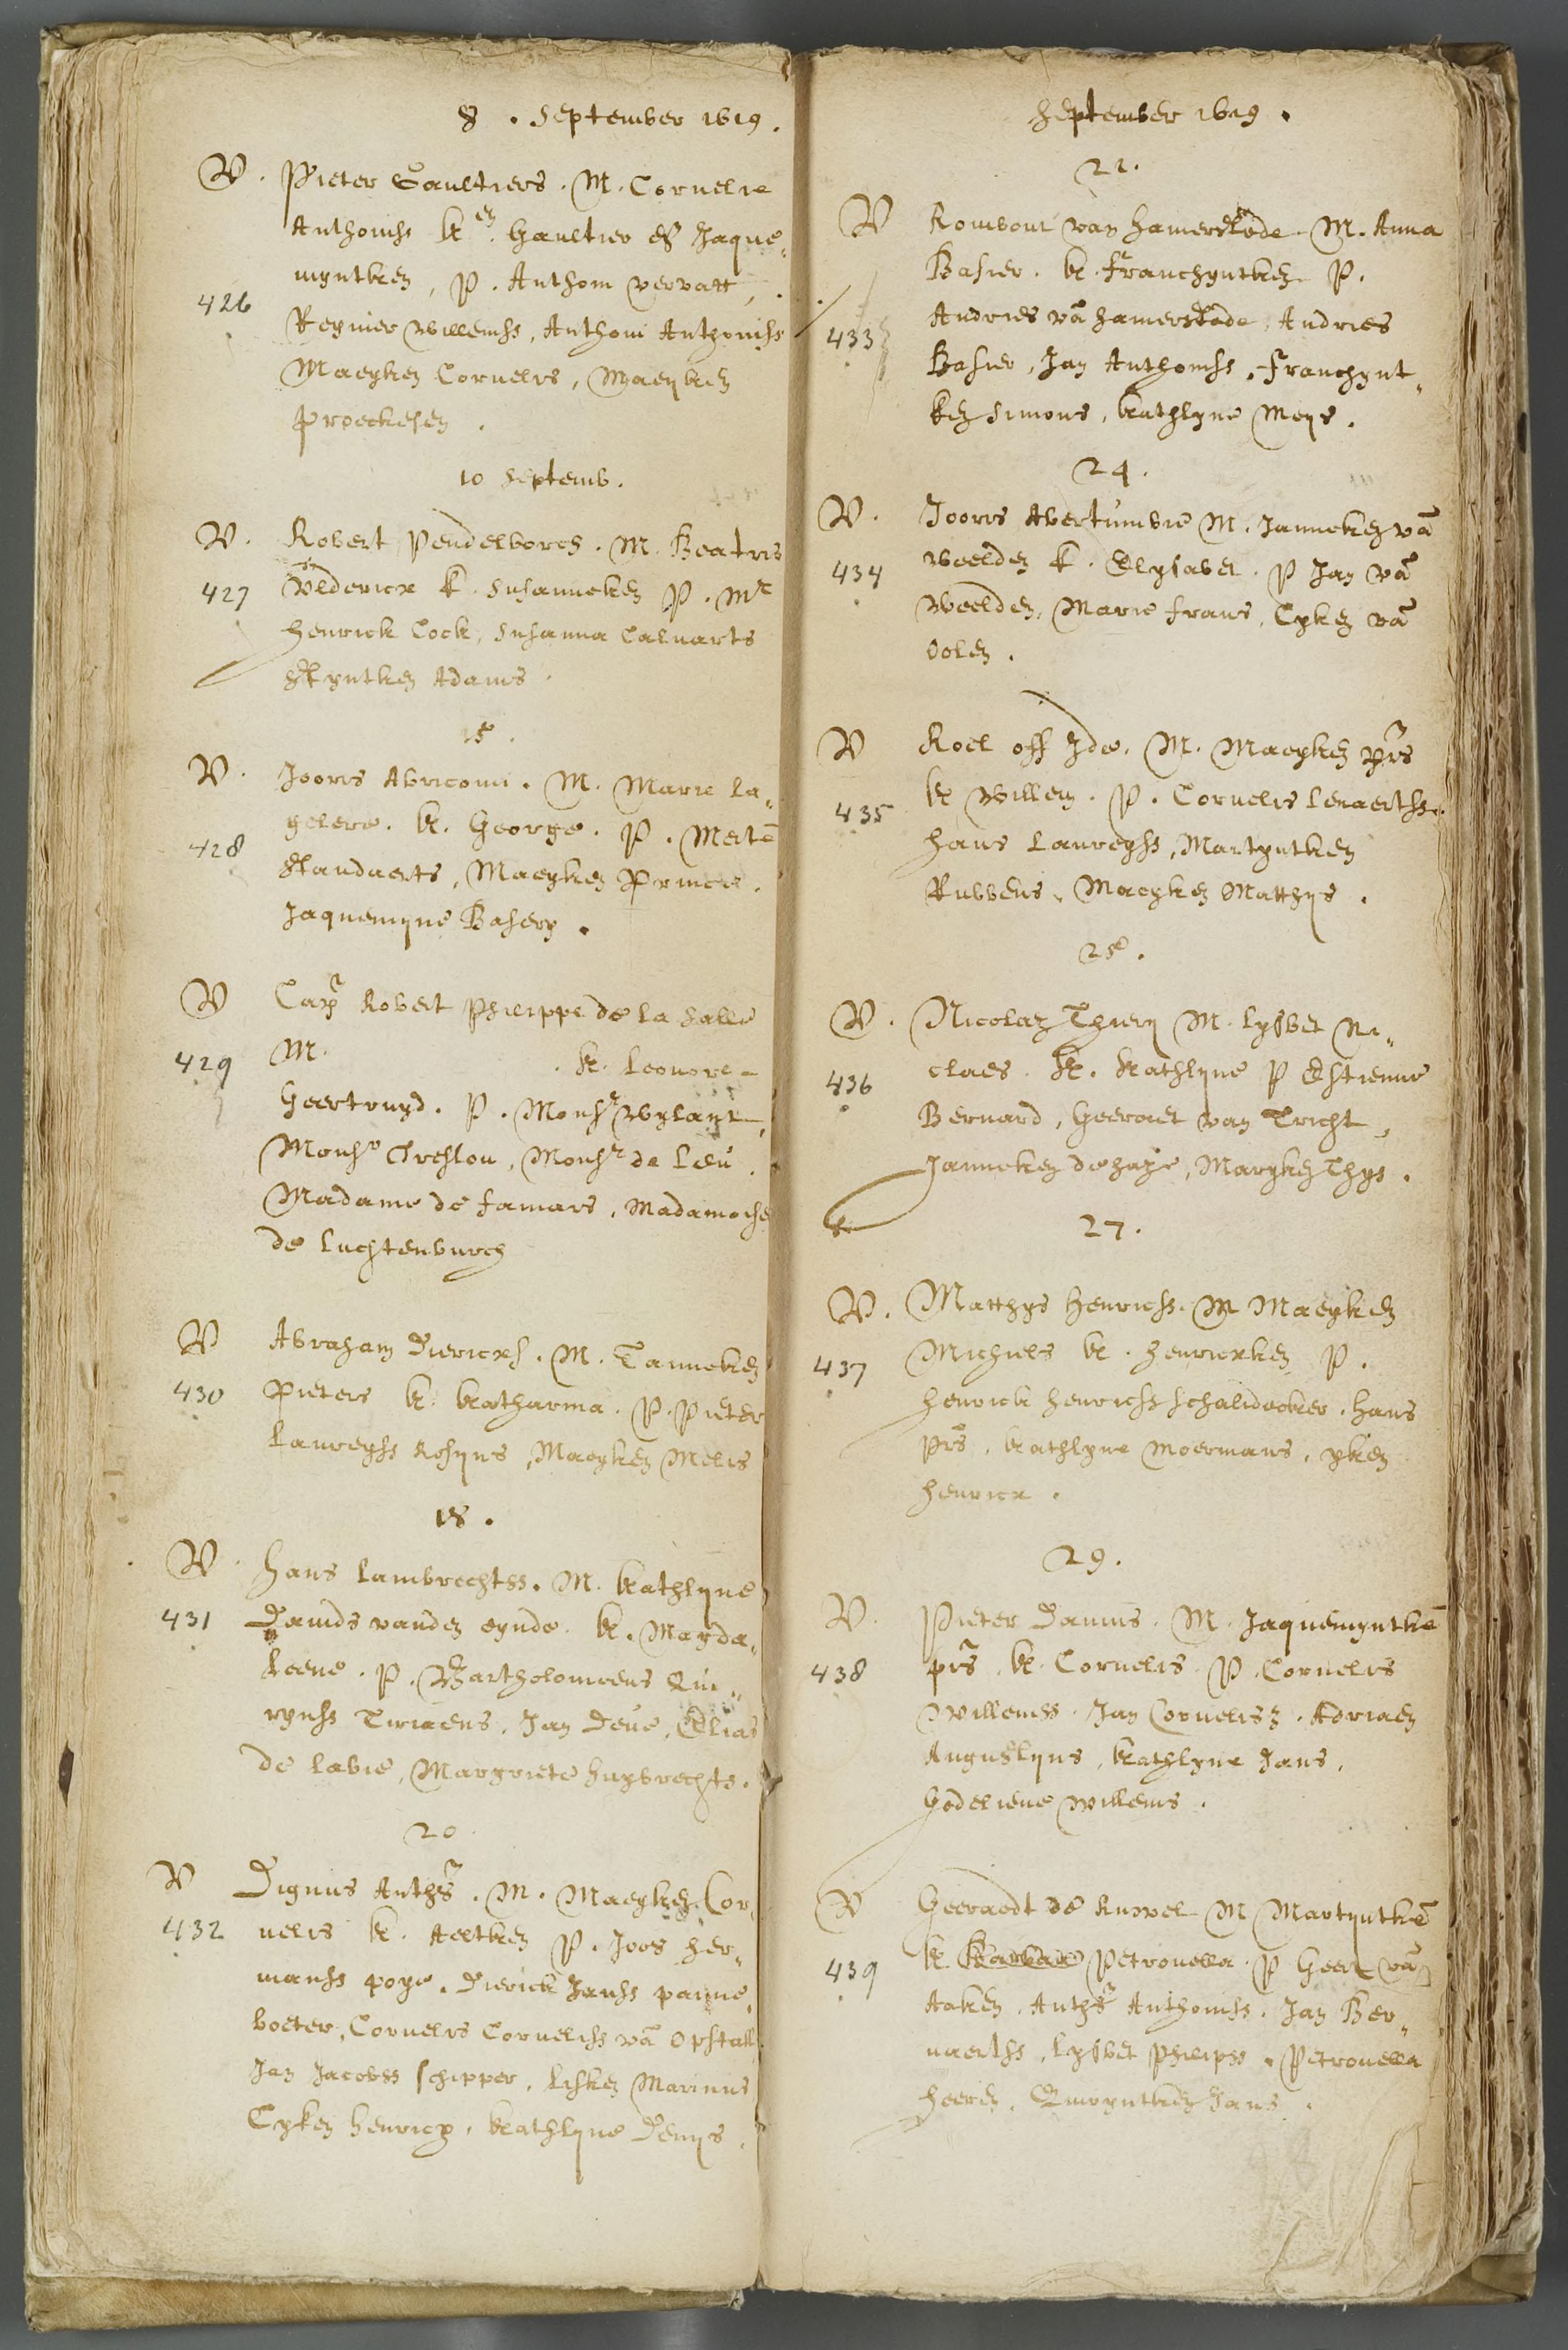 8 . September 1619 .
V . Pieter Gaultiers . M . Cornelie
Anthoniss k en . Gaultier & Jaque-
myntken , P . Anthoni vervatt ,
426
Reynier Willemss , Anthoni Anthoniss
Maeyken Cornelis , Maeyken
Proecksen .
10 Septemb .
V . Robert Pendelborch . M . Beatris
427 Vlderick k . Susanneken P . Mr
Henrick Cock , Susanna Caluarts
Styntken Adams .
15 .
V . Jooris Abricomi . M . Marie la-
gelere . k . George . P . Merten
428
Standaerts , Maeyken Princen .
Jaquemyne Basery .
V Cap Robert Philippe de la Salle
429 M . . k . Leonore -
Geertruyd . P . Monsr Wylant ,
Monsr Treslon , Monsr de Leeu .
Madame de famars , Madamoise
de Luchtenburch
V Abraham Diericxs . M . Tanneken
430 Pieters k . Katharina . P . Pieter
Laureyss Rosyns , Maeyken Melis
18 .
V . Hans Lambrechtss . M . Kathlyne
431 Dauids vanden eynde . k . Magda-
leene . P . Bartholomeeus Qui-
rynss Tirixens , Jan Deue , Elias
de labie , Margriete Huybrechts .
20
V Dignus Anths . M . Maeyken Cor-
432 nelis k . Aeltken P . Joos Her-
manss poye . Dierick Janss panne-
boeter , Cornelis Corneliss vā Opstall
Jan Jacobss schipper , Lisken Marinus
Cyken Henricx , Kathlyne Denys .
September 1619 .
22 .
V Rombout van Hamerstede . M . Anna
Basier . k . Franchyntken P .
Andries vā Hamerstede , Andries
433
Basier , Jan Anthoniss , Franchynt-
ken Simons , Kathlyne Meys .
24 .
V . Jooris Abertumbie M . Janneken vā
434 Weelden k . Elysabet . P Jan vā
Weelden , Marie frans , Cyken vā
Oolen .
V Roel off Ide . M . Maeyken Prs
435 k Willem . P . Cornelis Lenaertss .
Hans Laureyss , Martyntken
Rubbens , Maeyken Matthys .
25 .
V . Nicolas Thiery M . Lysbet Ni-
436 claes . k . Kathlyne P Estienne
Bernard , Geeraet van Tricht ,
Janneken de haze , Maryken Thys .
27 .
V . Matthys Henricss . M Maeyken
437 Michiels k . Henricxken P .
Henrick Henricss Schalidecker . Hans
Prs , Kathlyne Moermans , yken
Henricx .
29 .
V . Pieter Danius . M . Jaquemyntkē
438 Prs . k . Cornelis . P . Cornelis
Willemss . Jan Cornelisz . Adriaen
Augustyns , Kathlyne Jans ,
Godeliene Willems .
V Geeraedt de Ruwel M Martyntkē
439 k . Petronella . P Geert vā
Aaken , Anths Anthoniss . Jan Ber-
naertss , Lysbet Philipss . Petronella
Heeren , Quiryntken Jans .